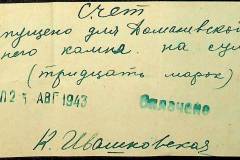 Счет
пущено для Доманевской
ного камня. на сум
(тридцать марок)
П 2 5 АВГ 1943 Оплачено
Н. Ивашковская